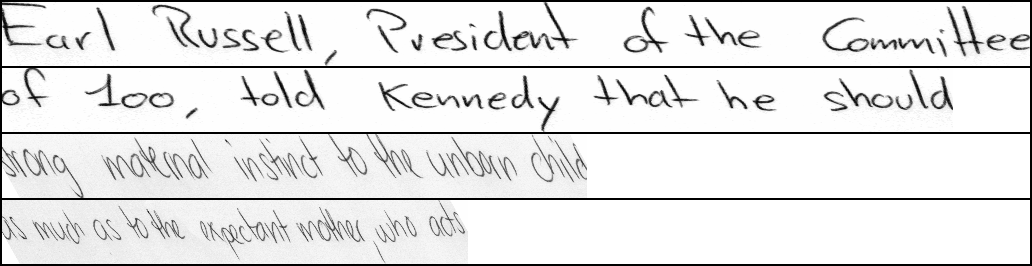 Earl Russell, President of the Committee
of 100, told Kennedy that he should
strong maternal instinct to the unborn child
as much as to the expectant mother, who acts